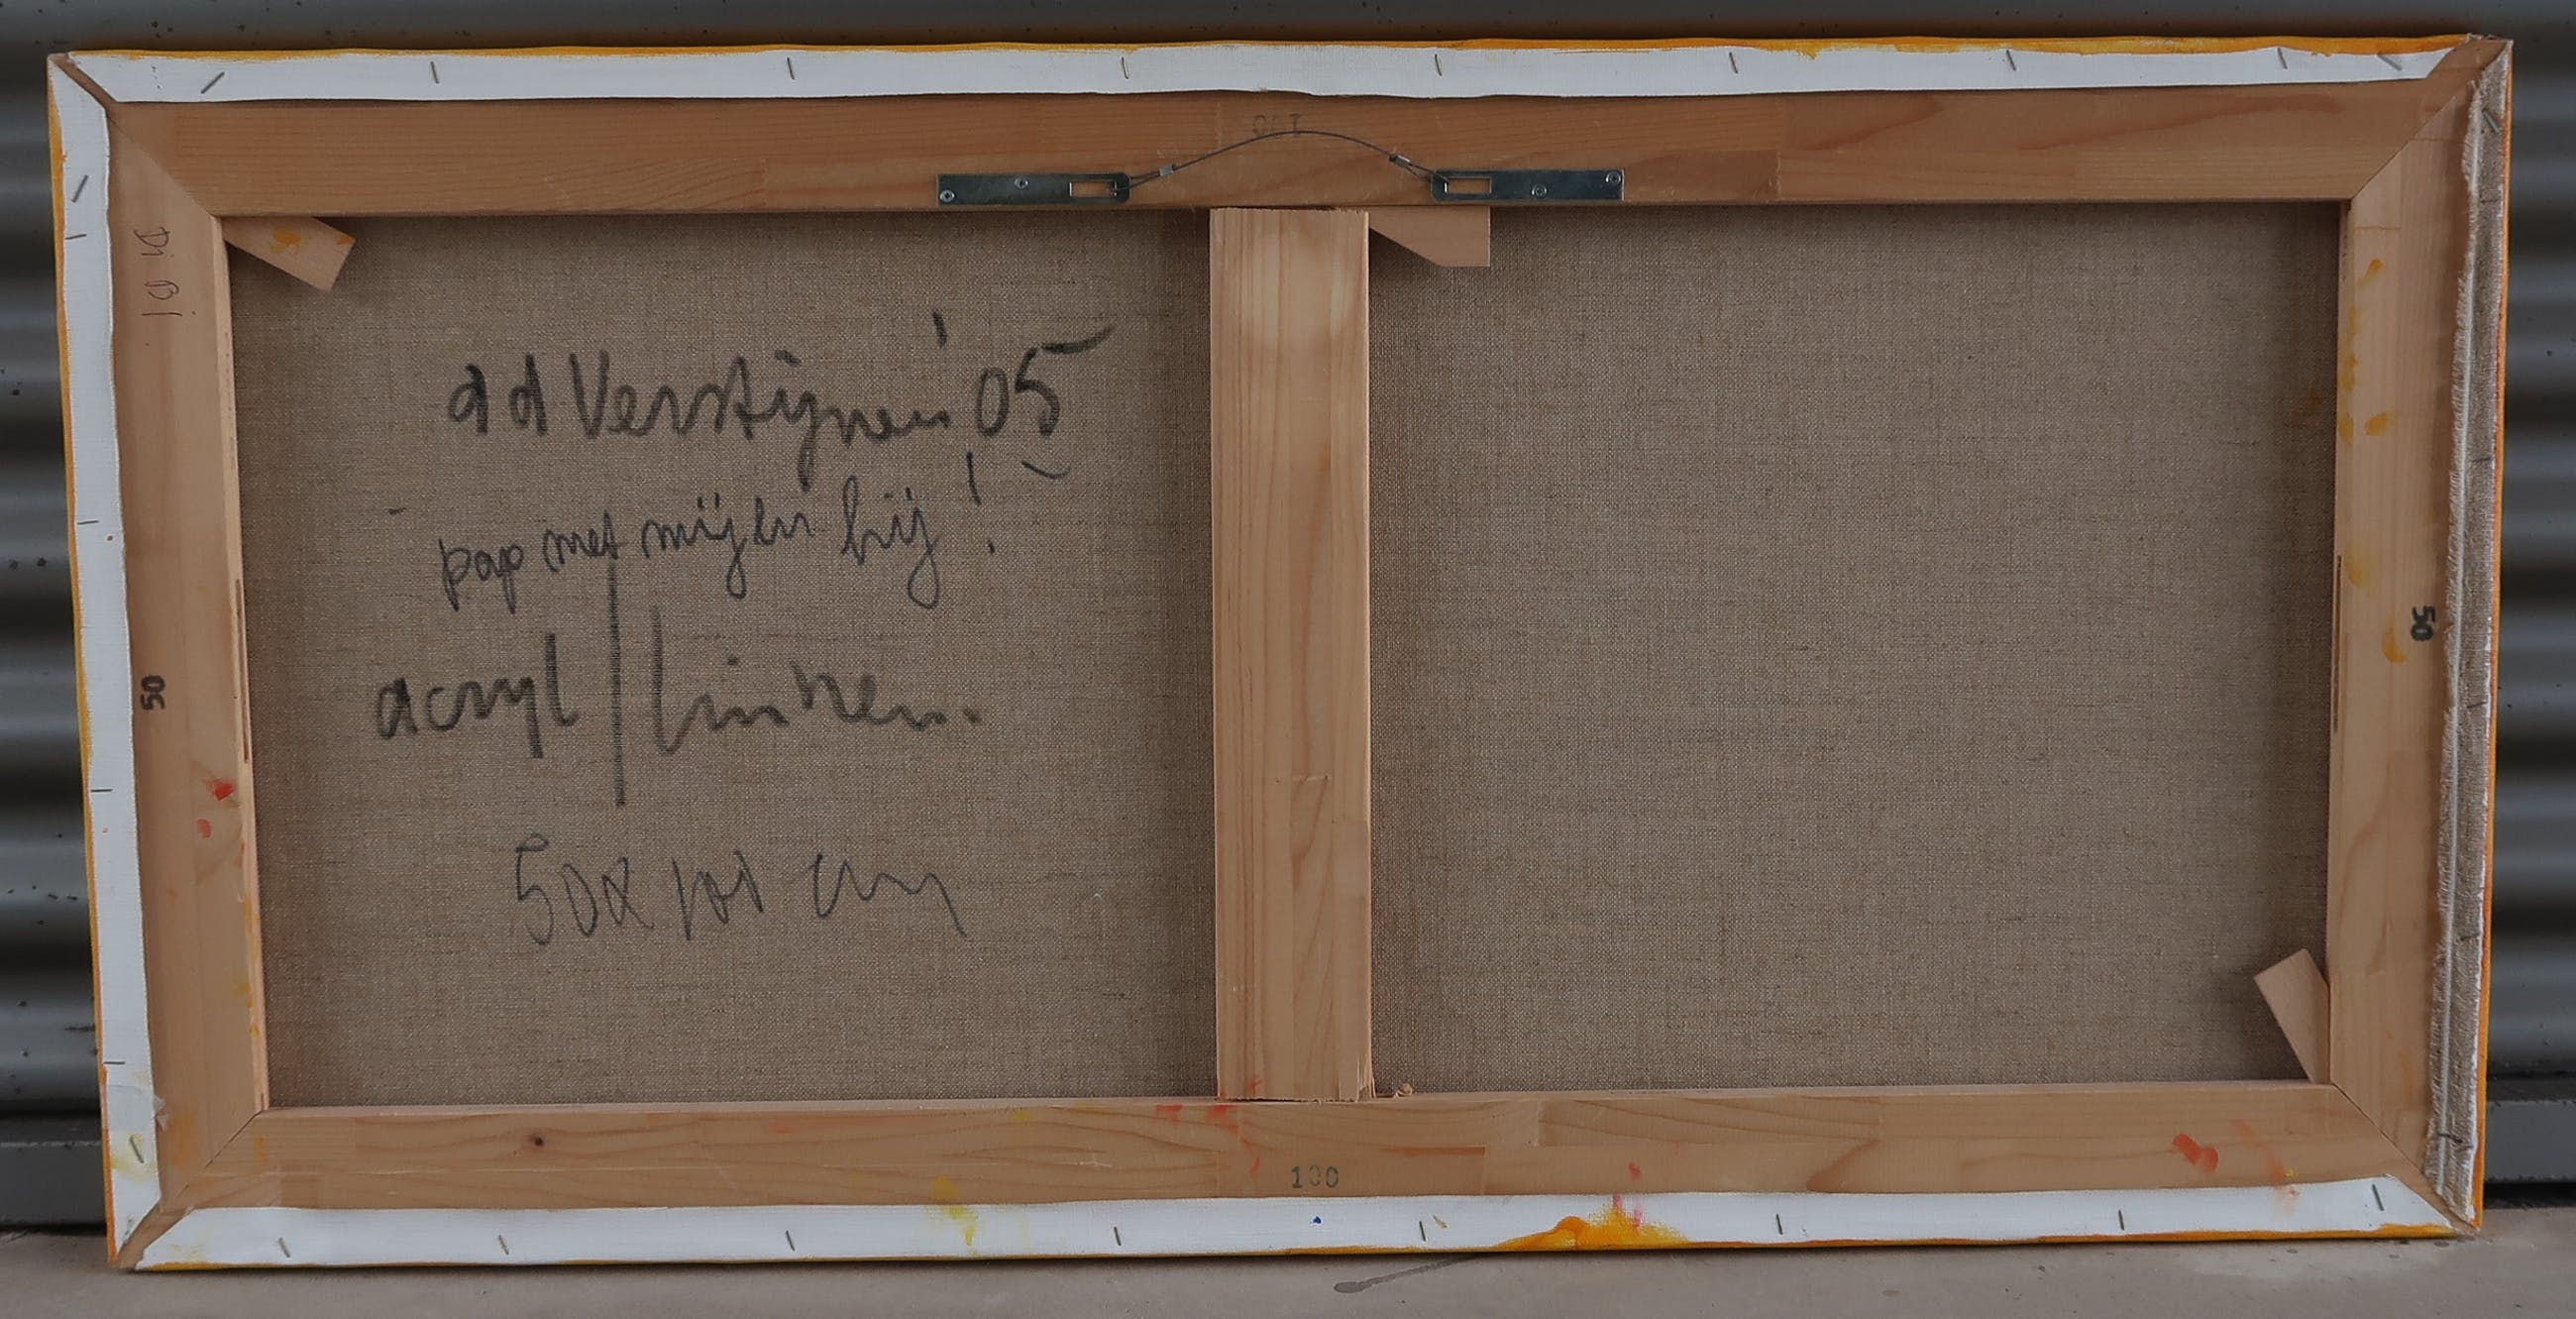 100
Di 01
ad Verstijnen '05
pap met mij en hij!
acryl / linnen.
50 x 100 cm
50
50
100